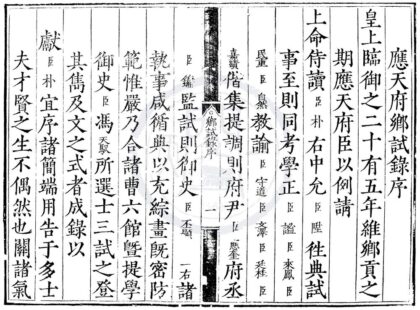 應天府鄉試錄序
皇上臨御之二十有五年維鄉貢之
期應天府臣以例請
上命侍讀臣朴右中允臣陞徃典試
事至則同考學正臣臣來鳳臣
臣教諭臣守道臣臣廷桂臣
偕集提調則府尹臣應奎府丞
鄉試錄序 一
臣監試則御史臣諸
執事咸循典以充綜畫旣密防
範惟嚴乃合諸曹六館曁提學
御史臣馮天馭所選士三試之登
其雋及文之式者成錄以
獻臣朴宜序諸簡端用告于多士
夫才賢之生不偶然也關諸氣